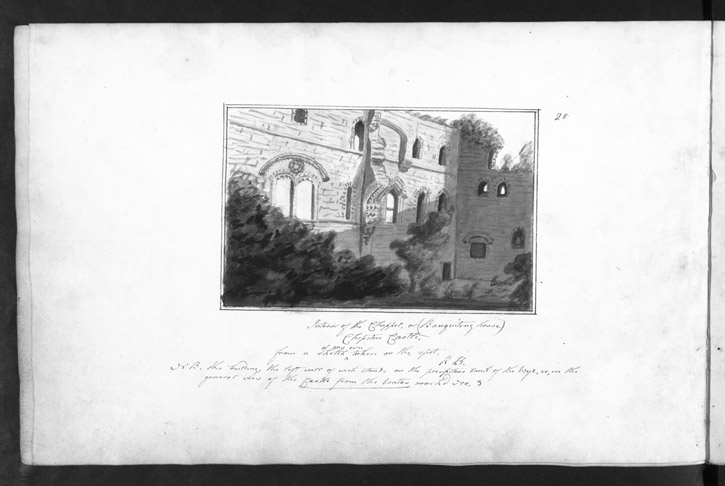 25
Interior of the Chappel, or (Banquiting house)
Chepstow Castle,
of my own
from a Sketch taken on the spot.
R B.
N B. this building, the left wall of wich stands on the precipitous bank of the Wye, is, in the
general view of the Castle from the water marked No. 3